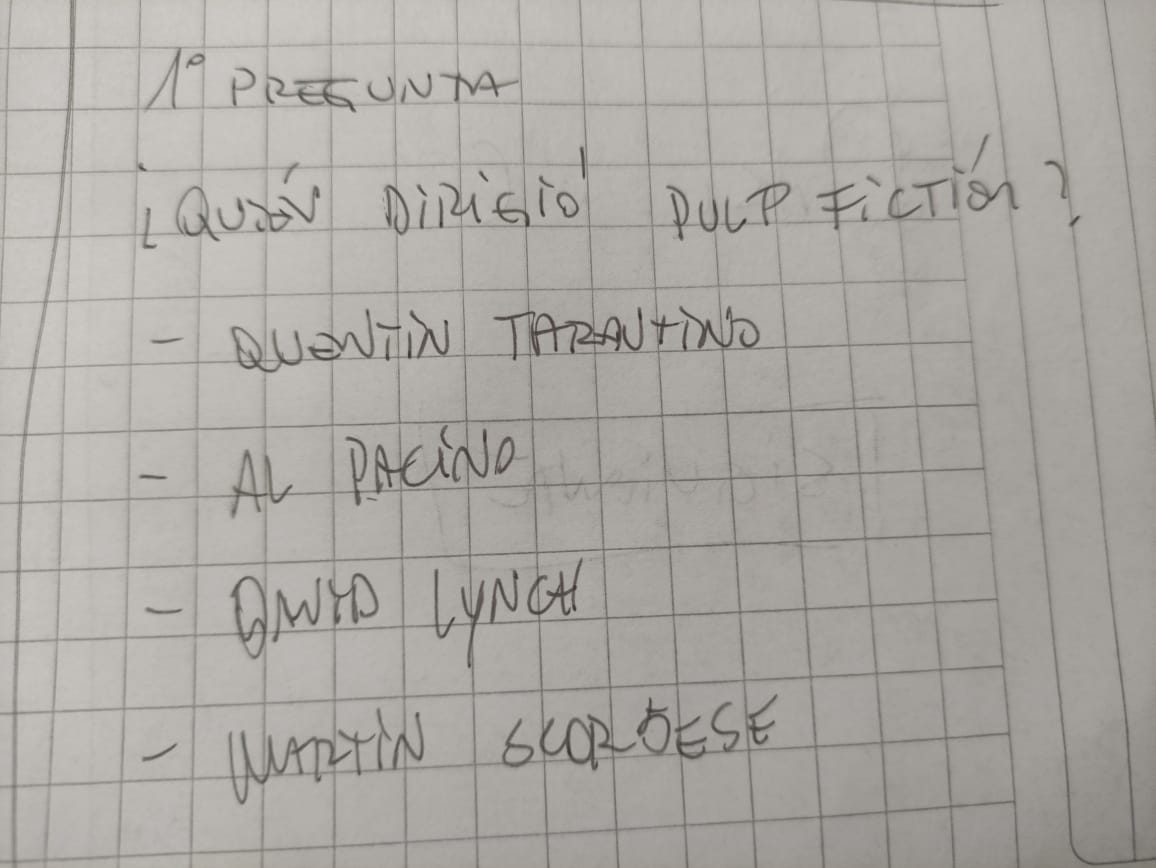 1º PREGUNTA
¿QUIÉN DIRIGIÓ PULP FICTIÓN?
- QUENTIN TARANTINO
- AL PACINO
- DAVID LYNCH
- MARTIN SCORSESE